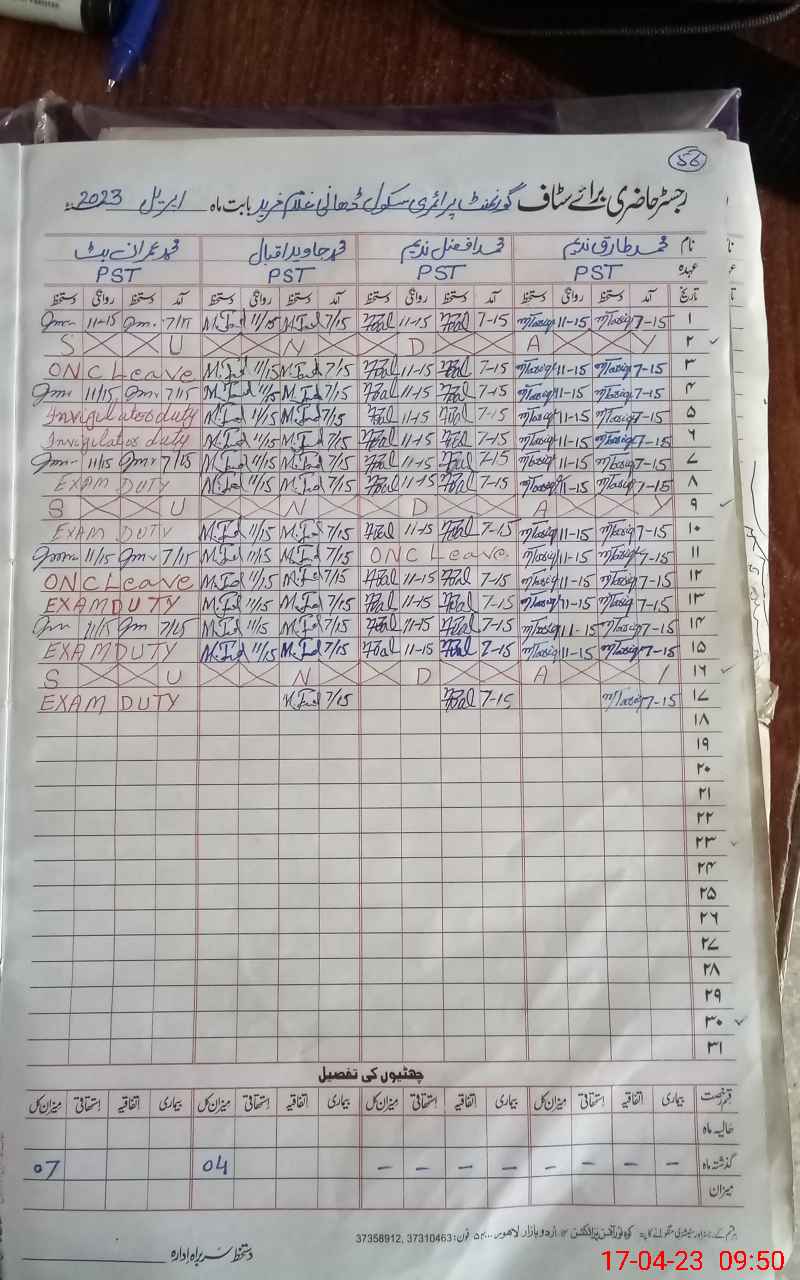 56
رجسٹر حاضری برائے سٹاف گورنمنٹ پرائمری سکول ڈھانی غلام فرید بابت ماہ اپریل 2023ء
نام محمد طارق ندیم محمد افضل ندیم محمد جاوید اقبال محمد عمران بٹ
عہدہ PST PST PST PST
تاریخ آمد دستخط روانگی دستخط آمد دستخط روانگی دستخط آمد دستخط روانگی دستخط آمد دستخط روانگی دستخط
۱ 7-15 11-15 7-15 11-15 7/15 11/15 7/15 11-15
۲ S U N D A Y
۳ 7-15 11-15 7-15 11-15 7/15 11/15 ON C Leave
۴ 7-15 11-15 7-15 11-15 7/15 11/15 7/15 11/15
۵ 7-15 11-15 7-15 11-15 7/15 11/15 Invigilator duty
۶ 7-15 11-15 7-15 11-15 7/15 11/15 Invigilator duty
۷ 7-15 11-15 7-15 11-15 7/15 11/15 7/15 11/15
۸ 7-15 11-15 7-15 11-15 7/15 11/15 EXAM DUTY
۹ S U N D A Y
۱۰ 7-15 11-15 7-15 11-15 7/15 11/15 EXAM DUTY
۱۱ 7-15 11-15 ON C Leave 7/15 11/15 7/15 11/15
۱۲ 7-15 11-15 7-15 11-15 7/15 11/15 ON C Leave
۱۳ 7-15 11-15 7-15 11-15 7/15 11/15 EXAM DUTY
۱۴ 7-15 11-15 7-15 11-15 7/15 11/15 7/15 11/15
۱۵ 7-15 11-15 7-15 11-15 7/15 11/15 EXAM DUTY
۱۶ S U N D A Y
۱۷ 7-15 7-15 7/15 EXAM DUTY
۱۸
۱۹
۲۰
۲۱
۲۲
۲۳
۲۴
۲۵
۲۶
۲۷
۲۸
۲۹
۳۰
۳۱
چھٹیوں کی تفصیل
قسم رخصت بیماری اتفاقیہ استحقاقی میزان کل بیماری اتفاقیہ استحقاقی میزان کل بیماری اتفاقیہ استحقاقی میزان کل بیماری اتفاقیہ استحقاقی میزان کل
حالیہ ماہ
گذشتہ ماہ – – – – – – – – 04 07
میزان
اردو بازار لاہور فون: 37310463, 37358912
دستخط سربراہ ادارہ
17-04-23 09:50